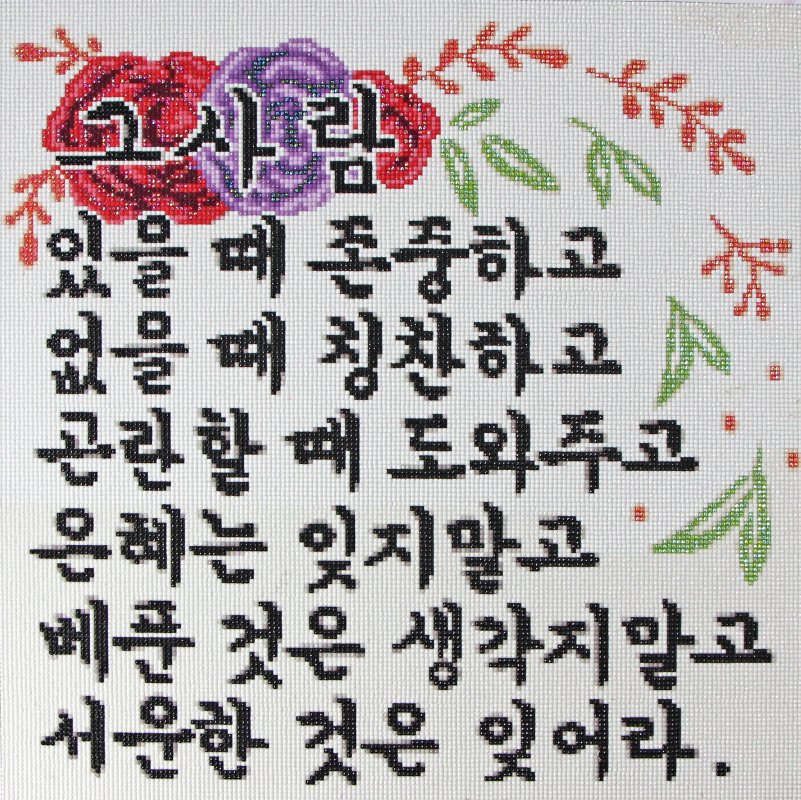 그사람
있을 때 존중하고
없을 때 칭찬하고
곤란할 때 도와주고
은혜는 잊지말고
베푼 것은 생각지말고
서운한 것은 잊어라.